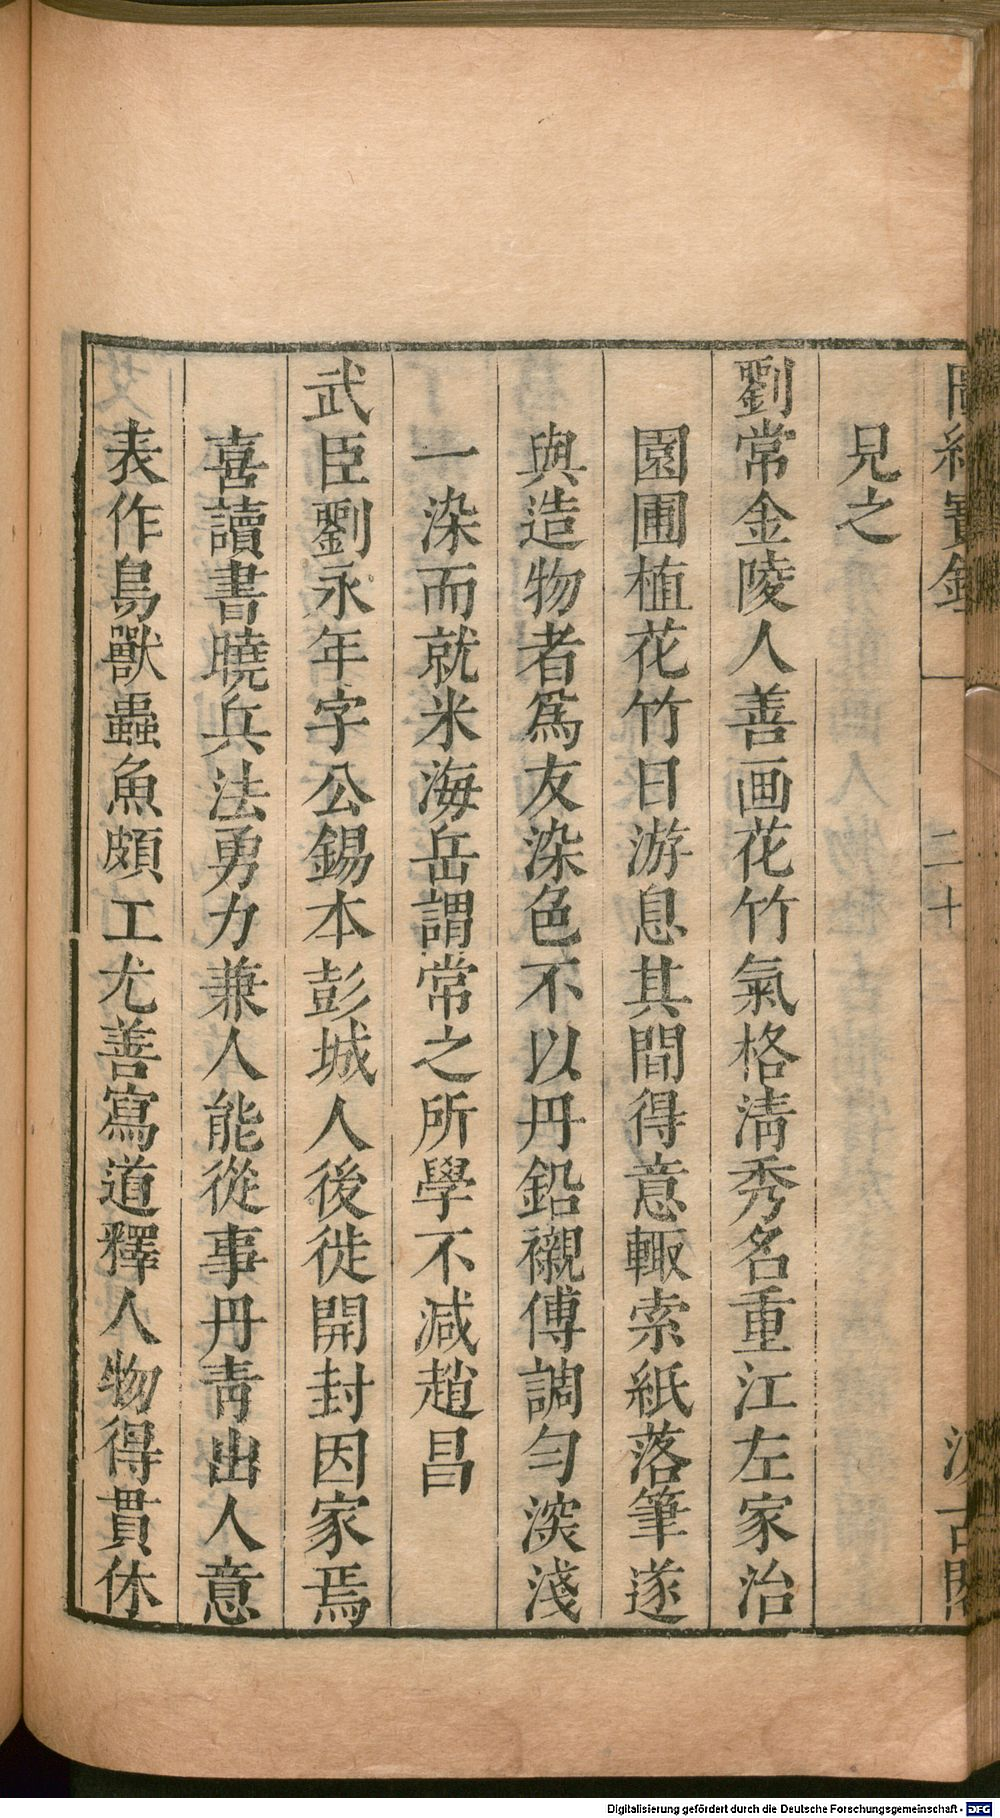 圖繪寶鑑 二十 汲古閣
兄之
劉常金陵人善画花竹氣格清秀名重江左家治
園圃植花竹日游息其間得意輙索紙落筆遂
與造物者爲友染色不以丹鉛襯傅調勻深淺
一染而就米海岳謂常之所學不減趙昌
武臣劉永年字公錫本彭城人後徙開封因家焉
喜讀書曉兵法勇力兼人能從事丹靑出人意
表作鳥獸蟲魚頗工尤善寫道釋人物得貫休
Digitalisierung gefördert durch die Deutsche Forschungsgemeinschaft - DFG